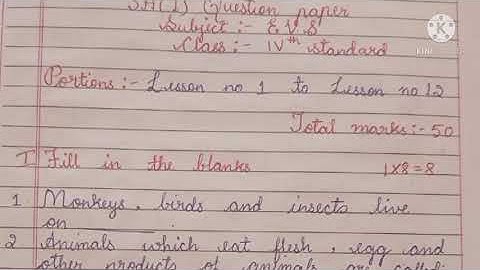 SA(1) Question paper
Subject :- E.V.S
Class :- IVth standard
Portions :- Lesson no 1 to Lesson no 12
Total marks :- 50
I Fill in the blanks 1x8=8
1 Monkeys, birds and insects live
on ________.
2 Animals which eat flesh, egg and
other products of animals are called
K